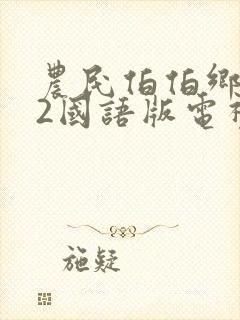 農民伯伯鄉
2國語版電視
施疑